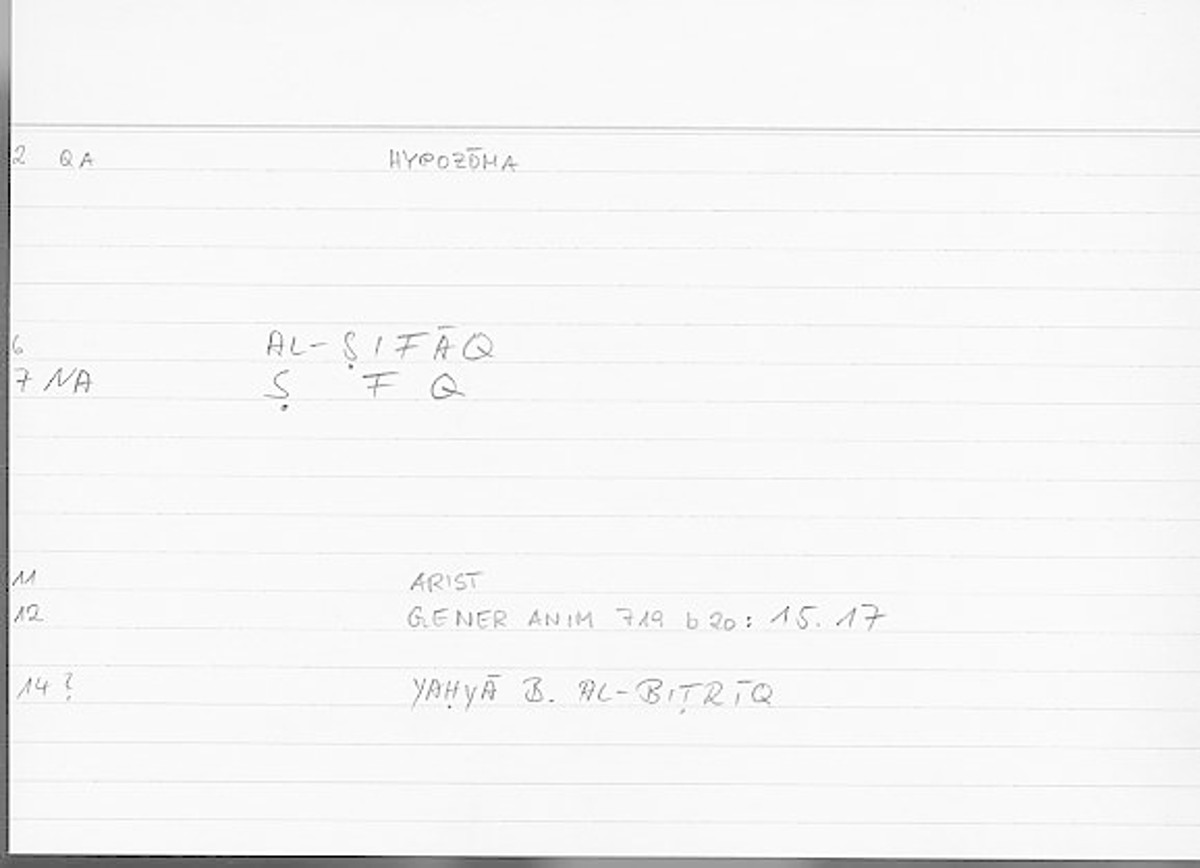 2 QA HYPOZŌMA
6 AL-ṢIFĀQ
7 NA Ṣ F Q
11 ARIST
12 GENER ANIM 719 b 20: 15. 17
14? YAḤYĀ B. AL-BIṬRĪQ